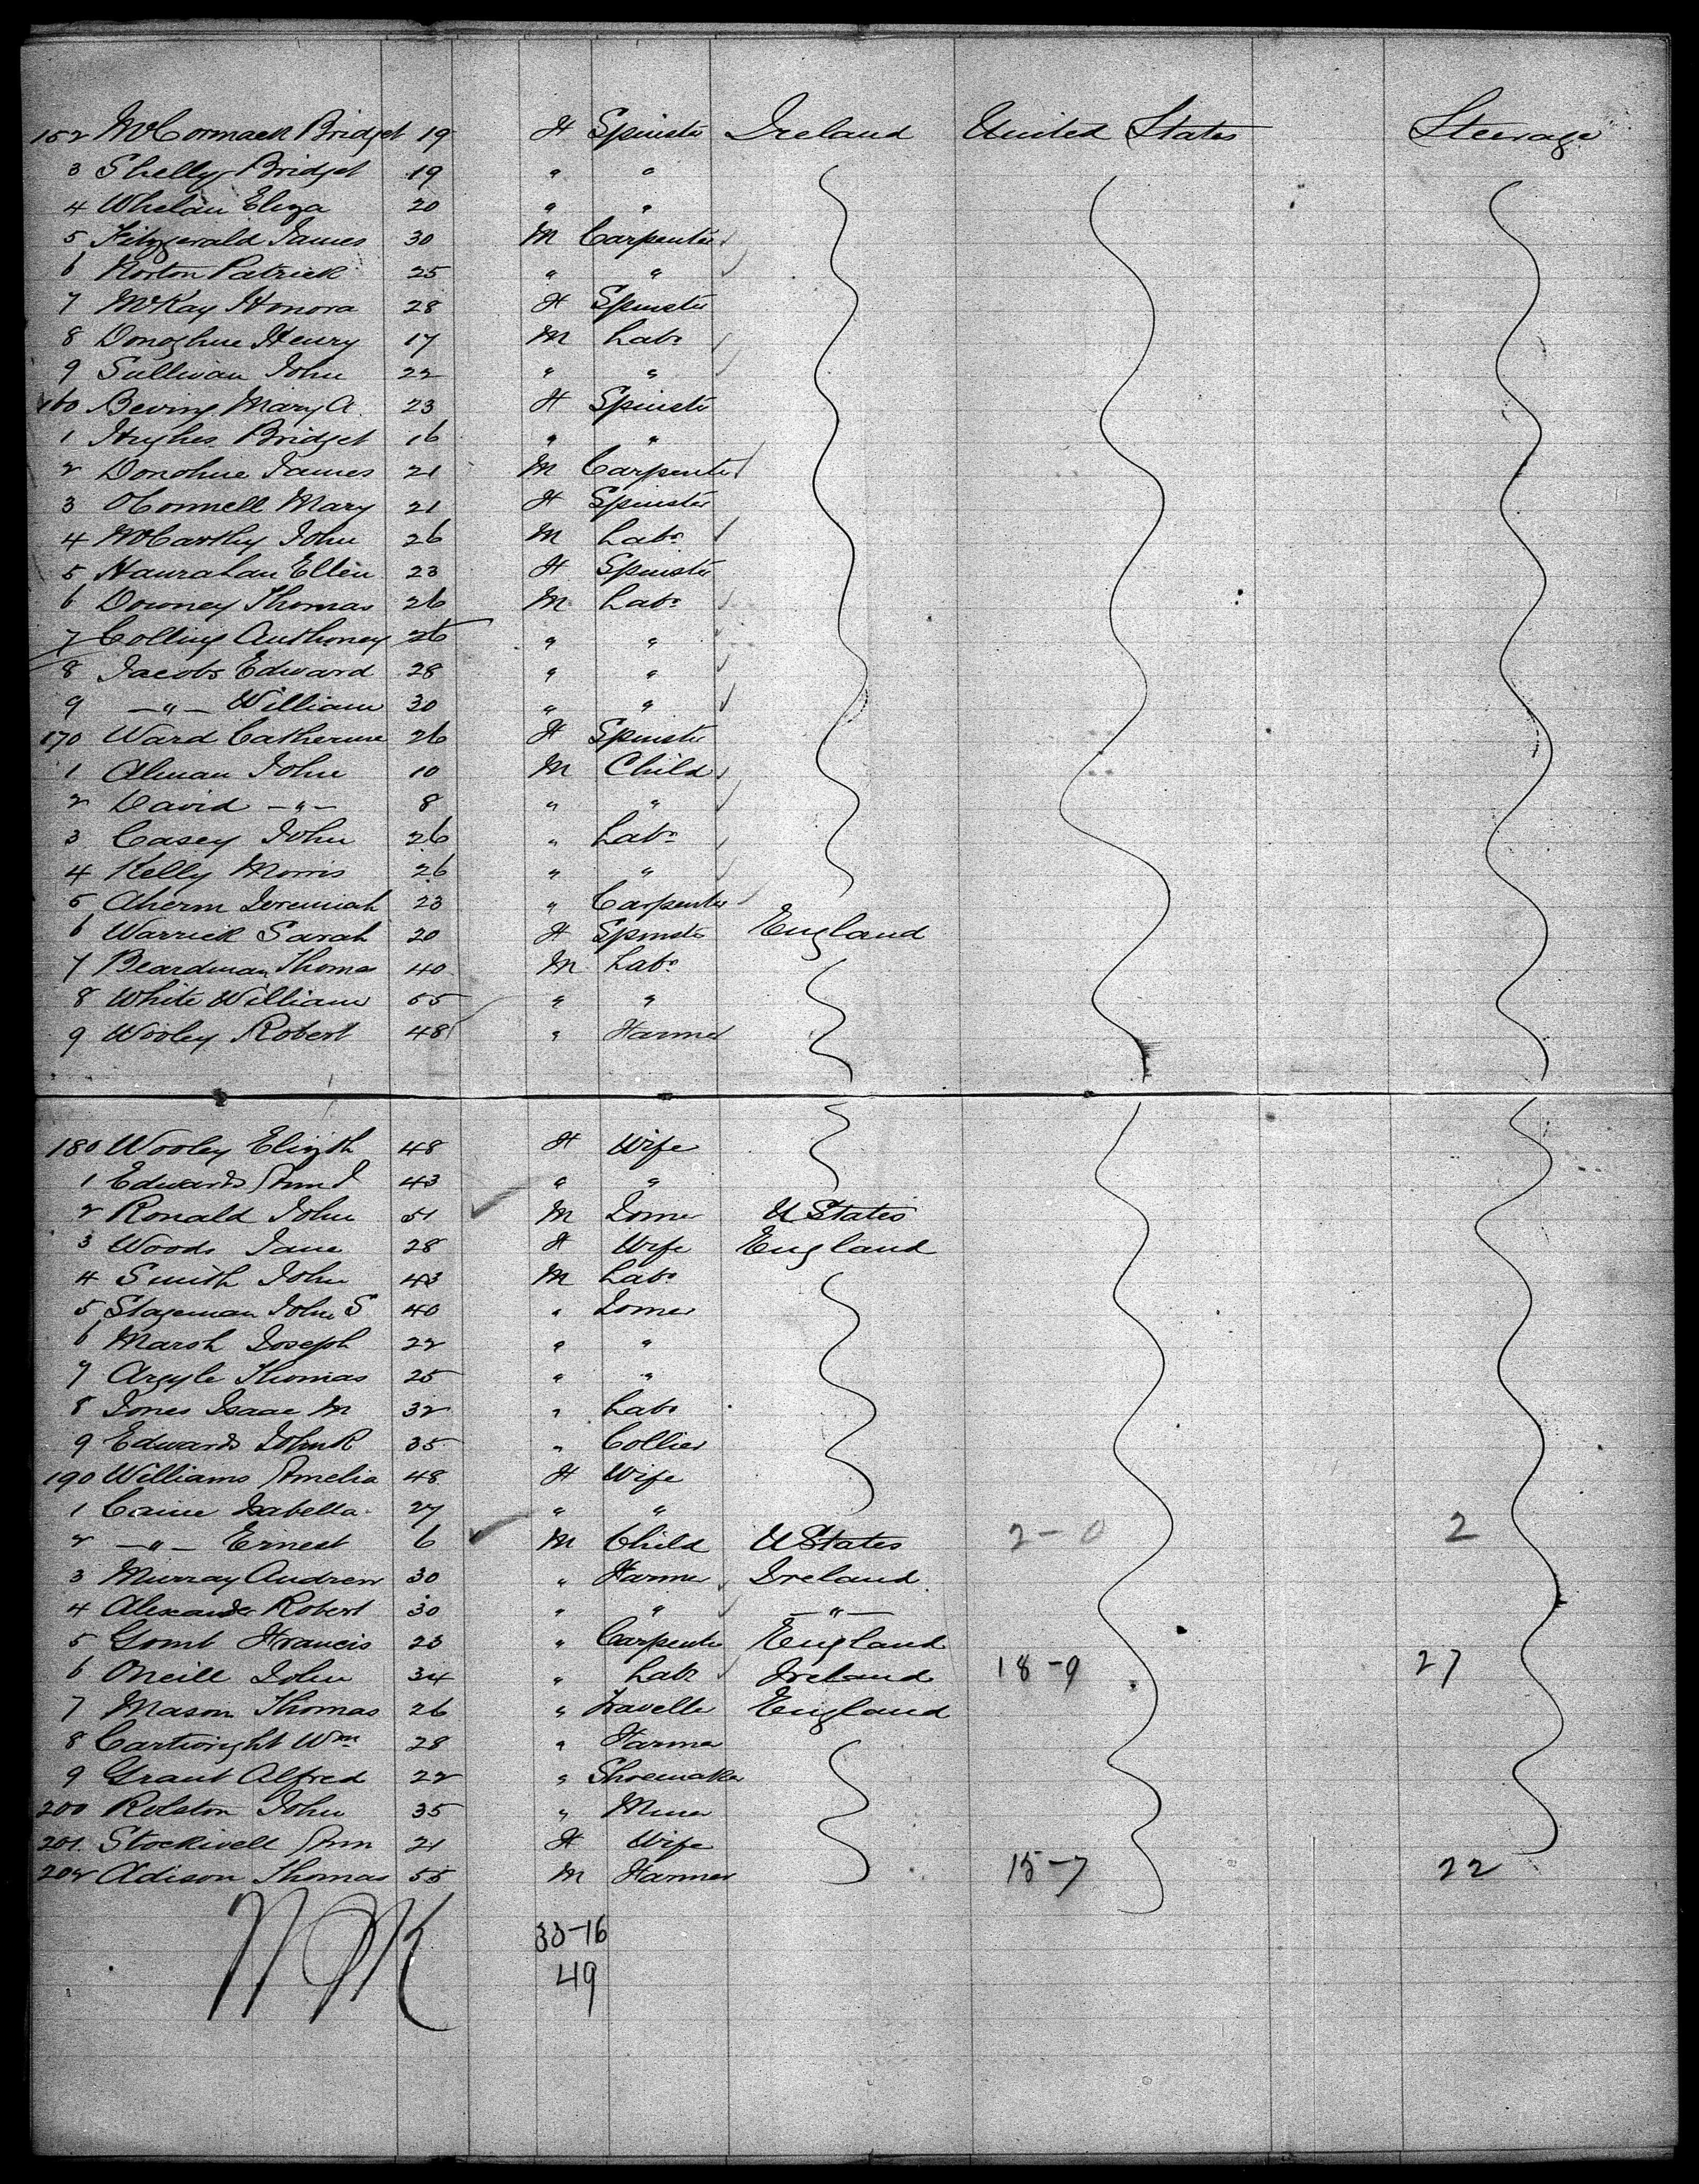 152 McCormack Bridget 19 F Spinster Ireland United States Steerage
3 Shelly Bridget 19 " "
4 Whelan Eliza 20 " "
5 Fitzgerald James 30 M Carpenter
6 Norton Patrick 25 " "
7 McKay Honora 28 F Spinster
8 Donoghue Henry 17 M Labr
9 Sullivan John 22 " "
160 Beving Mary A. 23 F Spinster
1 Hughes Bridget 16 " "
2 Donohue James 21 M Carpenter
3 OConnell Mary 21 F Spinster
4 McCarthy John 26 M Labr
5 Hanrahan Ellen 23 F Spinster
6 Downey Thomas 26 M Labr
7 Colling Anthoney 26 " "
8 Jacobs Edward 28 " "
9 -"- William 30 " "
170 Ward Catherine 26 F Spinster
1 Alman John 10 M Child
2 David -"- 8 " "
3 Casey John 26 " Labr
4 Kelly Morris 26 " "
5 Aherm Jeremiah 23 " Carpenter
6 Warrick Sarah 20 F Spinster England
7 Beardman Thomas 40 M Labr
8 White William 55 " "
9 Wooley Robert 48 " Farmer
180 Wooley Elizth 48 F Wife
1 Edwards Ann J 43 " "
2 Ronald John 51 M UStates
3 Woods Jane 28 F Wife England
4 Smith John 43 M Labr
5 Stageman John S 40 "
6 Marsh Joseph 22 " "
7 Argyle Thomas 25 " "
8 Jones Isaac M 32 " Labr
9 Edwards John R 35 " Collier
190 Williams Amelia 48 F Wife
1 Caine Isabella 27 " "
2 -"- Ernest 6 M Child UStates 2-0 2
3 Murray Andrew 30 " Farmer Ireland
4 Alexander Robert 30 " " -"-
5 Gomb Francis 23 " Carpenter England
6 Oneill John 34 " Labr Ireland 18-9 27
7 Mason Thomas 26 " Traveller England
8 Cartwright Wm 28 " Farmer
9 Grant Alfred 22 " Shoemaker
200 Rolston John 35 " Miner
201. Stockwell Ann 21 F Wife
202 Adison Thomas 55 M Farmer 15-7 22
33-16
49